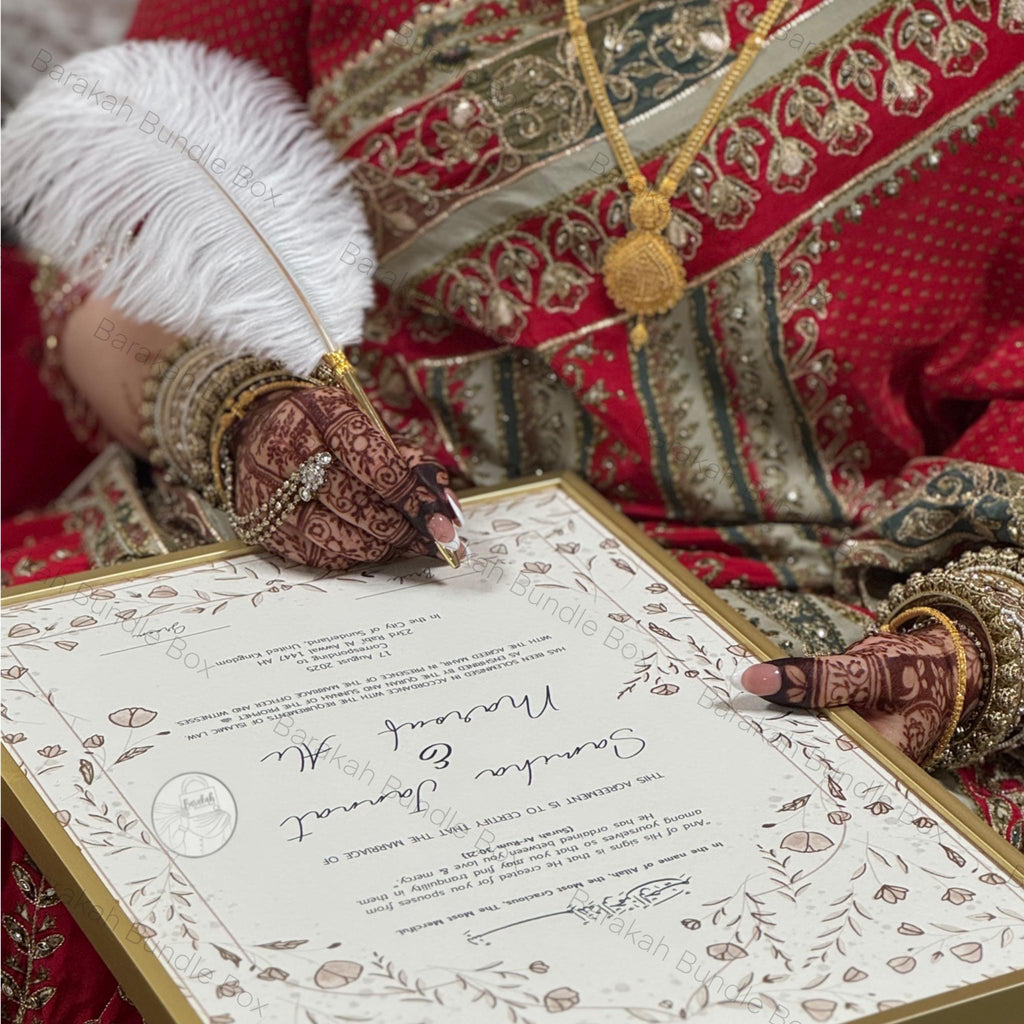 In the name of Allah, the Most Gracious, The Most Merciful.
"And of His signs is that He created for you spouses from
among yourselves so that you may find tranquility in them.
He has ordained between you love & mercy."
(Surah Ar Rum 30:21)
THIS AGREEMENT IS TO CERTIFY THAT THE MARRIAGE OF
Samiha Jannat
&
Maroof Ali
HAS BEEN SOLEMNISED IN ACCORDANCE WITH THE REQUIREMENTS OF ISLAMIC LAW,
AS ENSHRINED BY THE QURAN AND SUNNAH OF THE PROPHET ﷺ
WITH THE AGREED MAHR, IN PRESENCE OF THE MARRIAGE OFFICER AND WITNESSES.
17 August 2025
Corresponding to
23rd Rabi' Al Awwal 1447 AH
In the City of Sunderland, United Kingdom
Groom
Barakah Bundle Box
Barakah Bundle Box
Barakah Bundle Box
Barakah Bundle Box
Barakah Bundle Box
Barakah Bundle Box